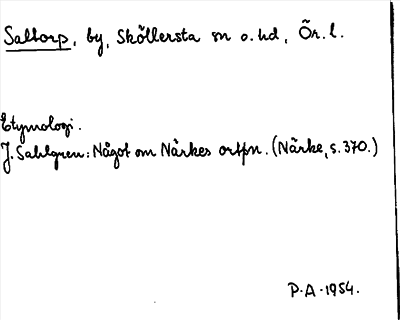 Saltorp, by, Sköllersta sn o. hd, Ör. l.
Etymologi.
J. Sahlgren: Något om Närkes ortpn. (Närke, s. 370.)
P. A. 1954.